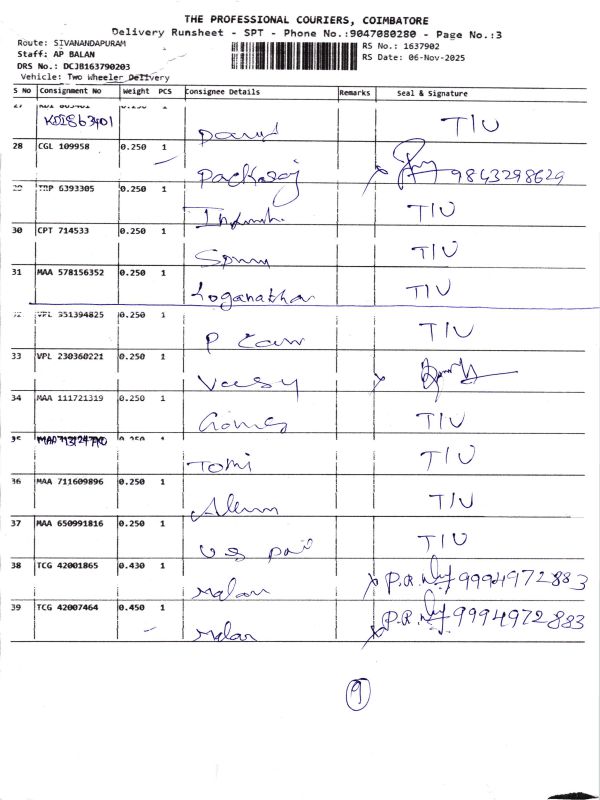 THE PROFESSIONAL COURIERS, COIMBATORE
Delivery Runsheet - SPT - Phone No.:9047080280 - Page No.:3
Route: SIVANANDAPURAM
Staff: AP BALAN
DRS No.: DCJB163790203
Vehicle: Two Wheeler Delivery
RS No.: 1637902
RS Date: 06-Nov-2025
S No Consignment No Weight PCS Consignee Details Remarks Seal & Signature
27 KDI 863401 0.250 1
KDI863401 T/U
28 CGL 109958 0.250 1 9843298629
29 TRP 6393305 0.250 1 T/U
30 CPT 714533 0.250 1 T/U
31 MAA 578156352 0.250 1 Loganathan T/U
32 VPL 351394825 0.250 1 T/U
33 VPL 230360221 0.250 1
34 MAA 111721319 0.250 1 T/U
35 0.250 1 Tomi T/U
36 MAA 711609896 0.250 1 T/U
37 MAA 650991816 0.250 1 T/U
38 TCG 42001865 0.430 1 P.R. 9994972883
39 TCG 42007464 0.450 1 P.R. 9994972883
9